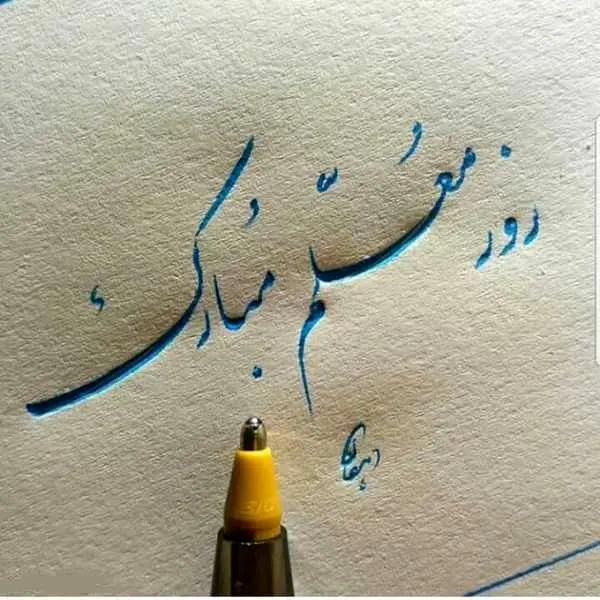 روز معلّم مبارک